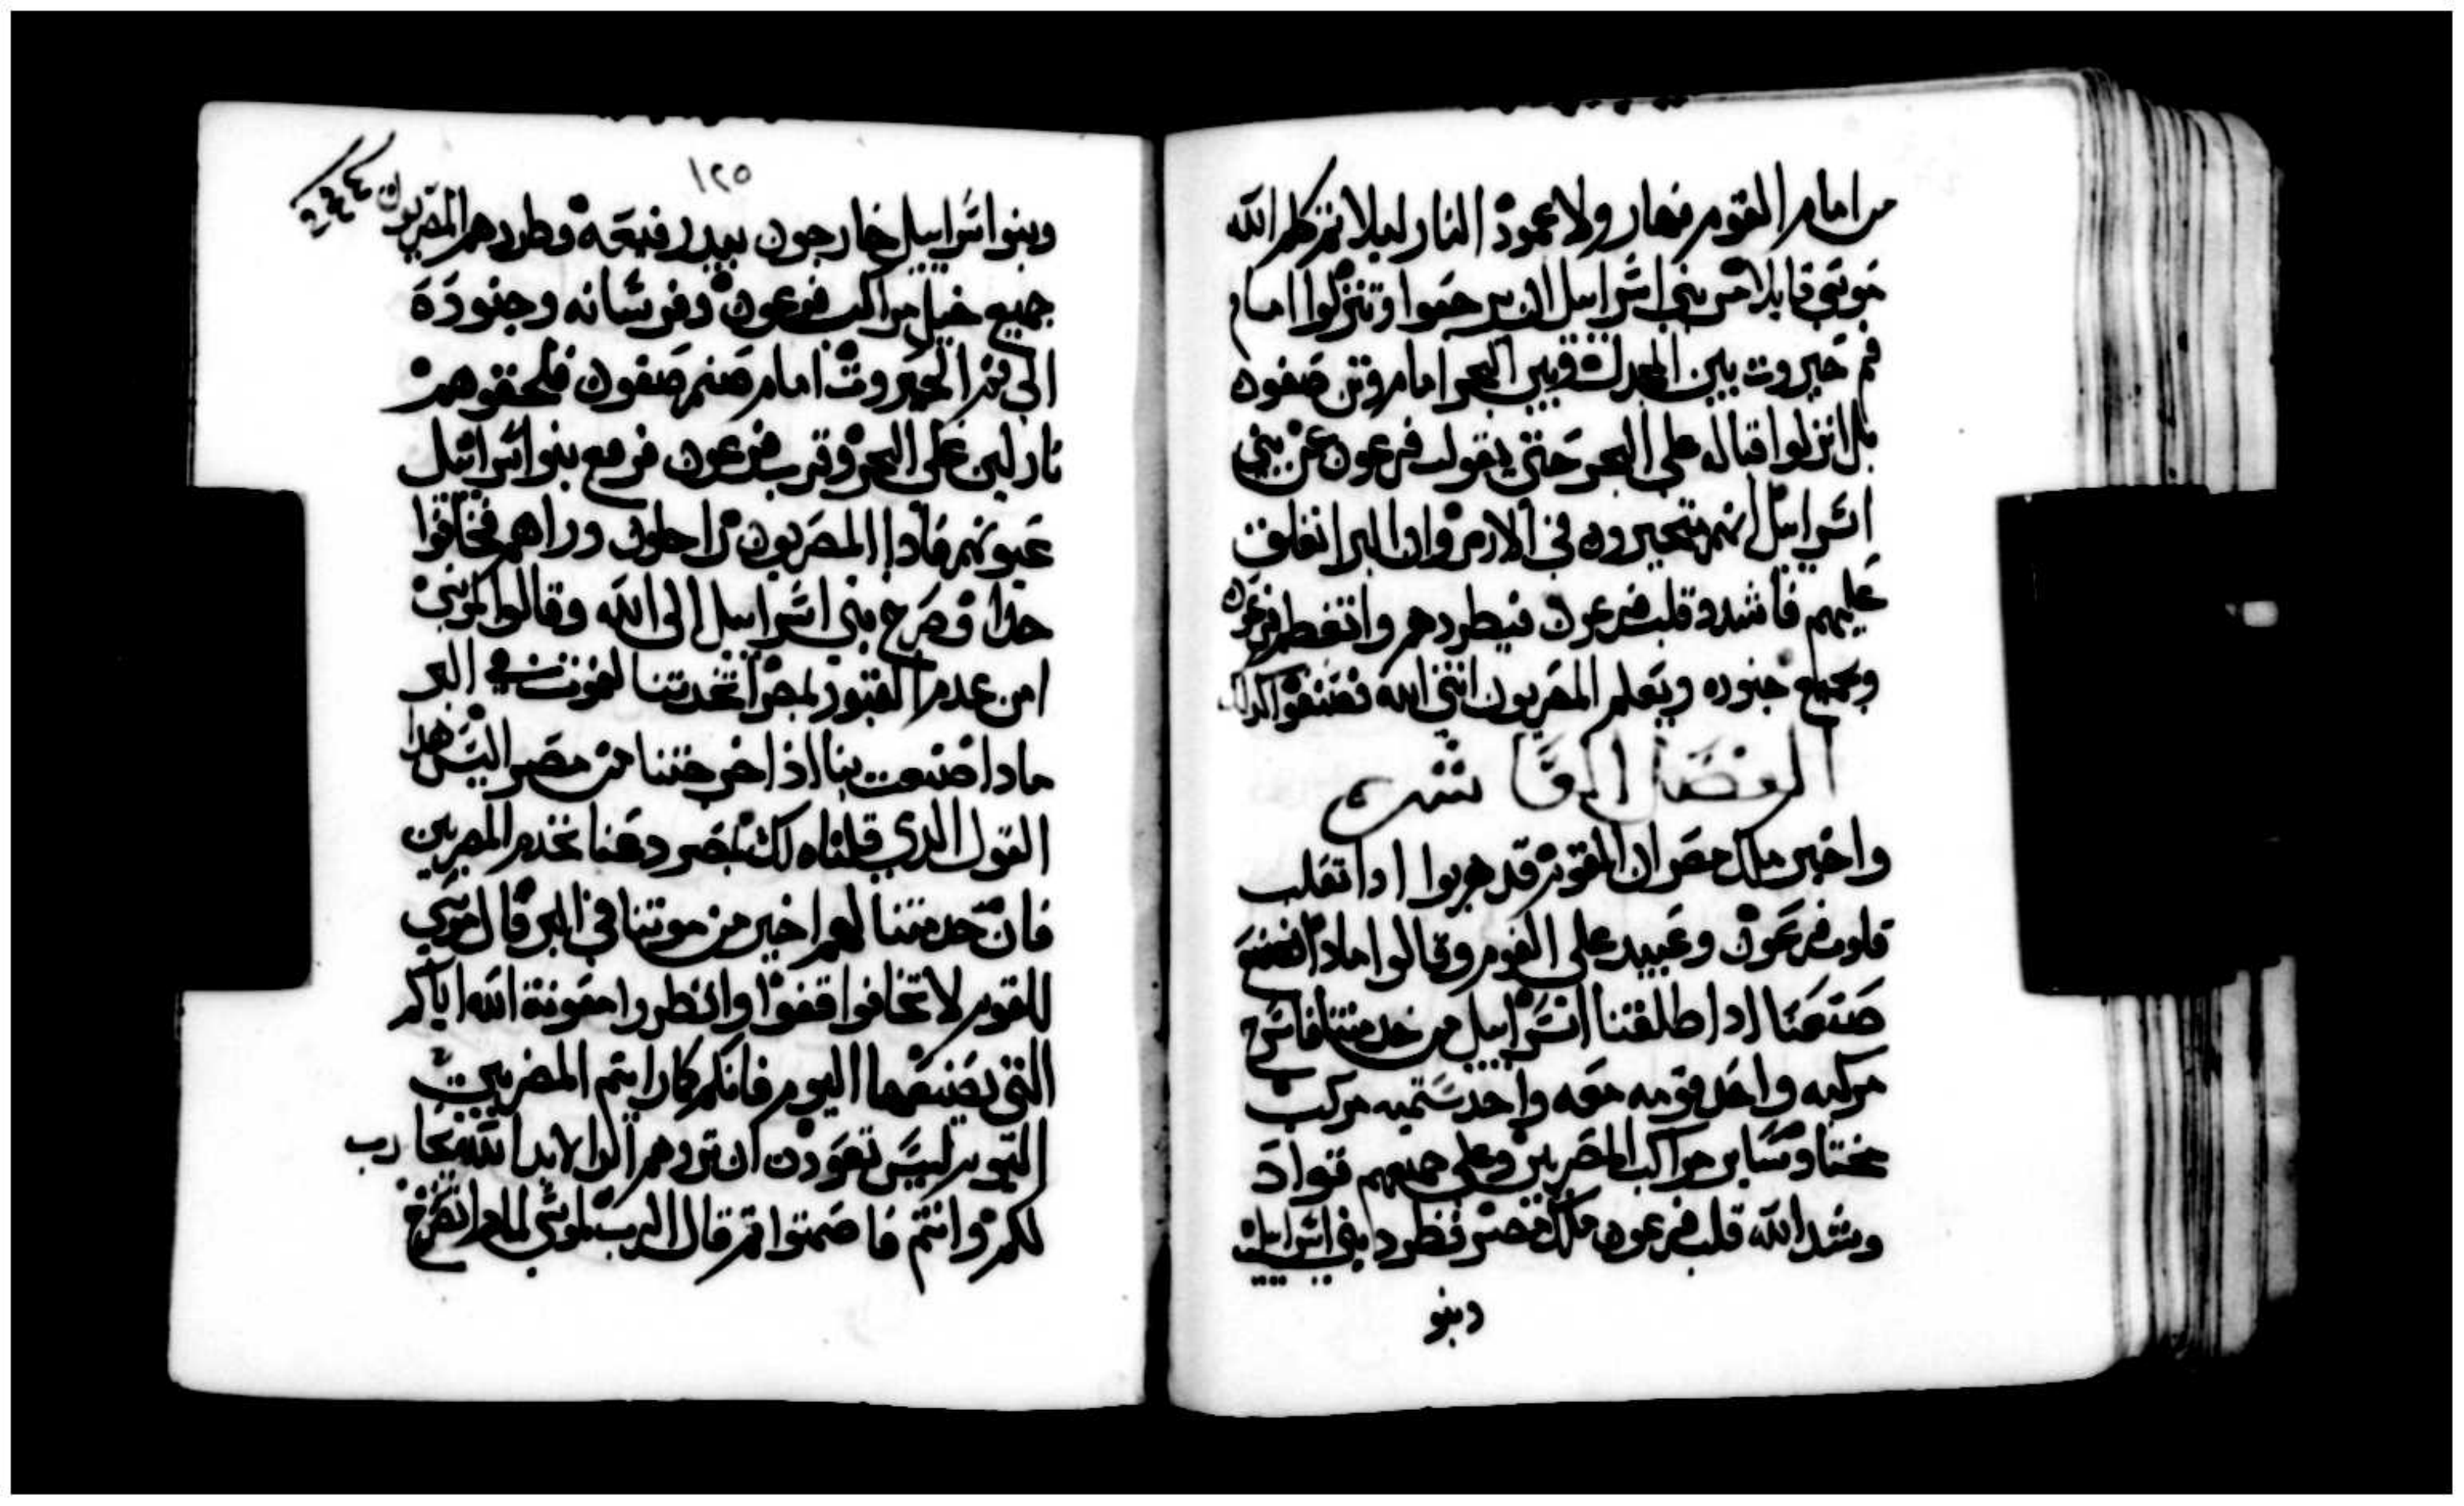 من امام القوم نهار ولا عمود النار ليلا ثم كلم الله
موسى قايلا مر بني اسرايل ان يرجعوا وتنزلوا امام
فم حيروت بين المجدل وبين البحر امام وثن صفون
بل انزلوا قباله على البحر حتى يقول فرعون عن بني
اسرايل انهم متحيرون في الارض وان البر انغلق
عليهم فاشدد قلب فرعون فيطردهم واتعظم فرعون
وبجميع جنوده ويعلم المصريون انني الله فصنعوا كدلك
الفصل
واخبر ملك مصر ان القوم قد هربوا ادا تقلب
قلوب فرعون وعبيده على القوم وقالوا مادا
صنعنا ادا طلقنا اسرايل من خدمتنا فاسرج
مركبه واخد قومه معه واخد ستميه مركب
مختاره وساير مراكب المصريين وعلى جميعهم قواد
وشد الله قلب فرعون ملك مصر فطرد بني اسرايل
وبنو
١٢٥
وبنوا اسرايل خارجون بيد رفيعه وطردهم المصريون
جميع خيل مراكب فرعون وفرسانه وجنوده
الى فم الحيروت امام صنم صفون فلحقوهم
نازلين على البحر وقرب فرعون فرفع بنوا اسرايل
عيونهم فادا المصريون راحلون وراهم فخافوا
جدا وصرخ بني اسرايل الى الله وقالوا لموسى
امن عدم القبور لمصر اتخدتنا لنموت في البر
مادا صنعت بنا اذ اخرجتنا من مصر اليس هدا
القول الدي قلناه لك بمصر دعنا نخدم المصريين
فان خدمتنا لهم اخير من موتنا في البر قال موسي
للقوم لا تخافوا قفوا وانظروا معونة الله اياكم
التي يصنعها اليوم فانكم كما رايتم المصريين
اليوم ليس تعودن ان تروهم الى الابد الله يحارب
لكم وانتم فاصمتوا ثم قال الرب لموسى لمادا تصرخ